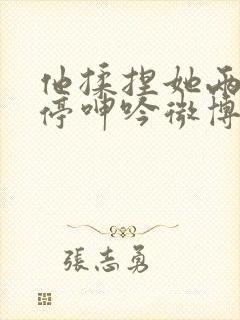 他揉捏她两
停呻吟微博
張志勇